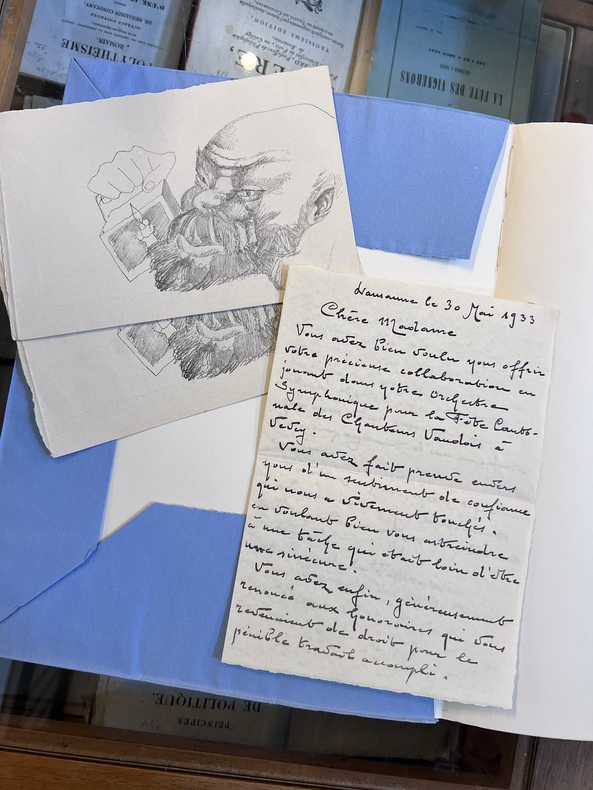 POLYTHÉISME
DE BENJAMIN CONSTANT
TROISIÈME ÉDITION,
LA FÊTE DES VIGNERONS
Lausanne le 30 Mai 1933
Chère Madame
Vous avez bien voulu nous offrir
votre précieuse collaboration en
jouant dans notre Orchestre
Symphonique pour la Fête Canto-
nale des Chanteurs Vaudois à
Vevey.
Vous avez fait preuve envers
nous d'un sentiment de confiance
qui nous a vivement touchés.
en voulant bien vous astreindre
à une tâche qui était loin d'être
une sinécure.
Vous avez enfin, généreusement
renoncé aux honoraires qui vous
revenaient de droit pour le
pénible travail accompli.
PRINCIPES
DE POLITIQUE,